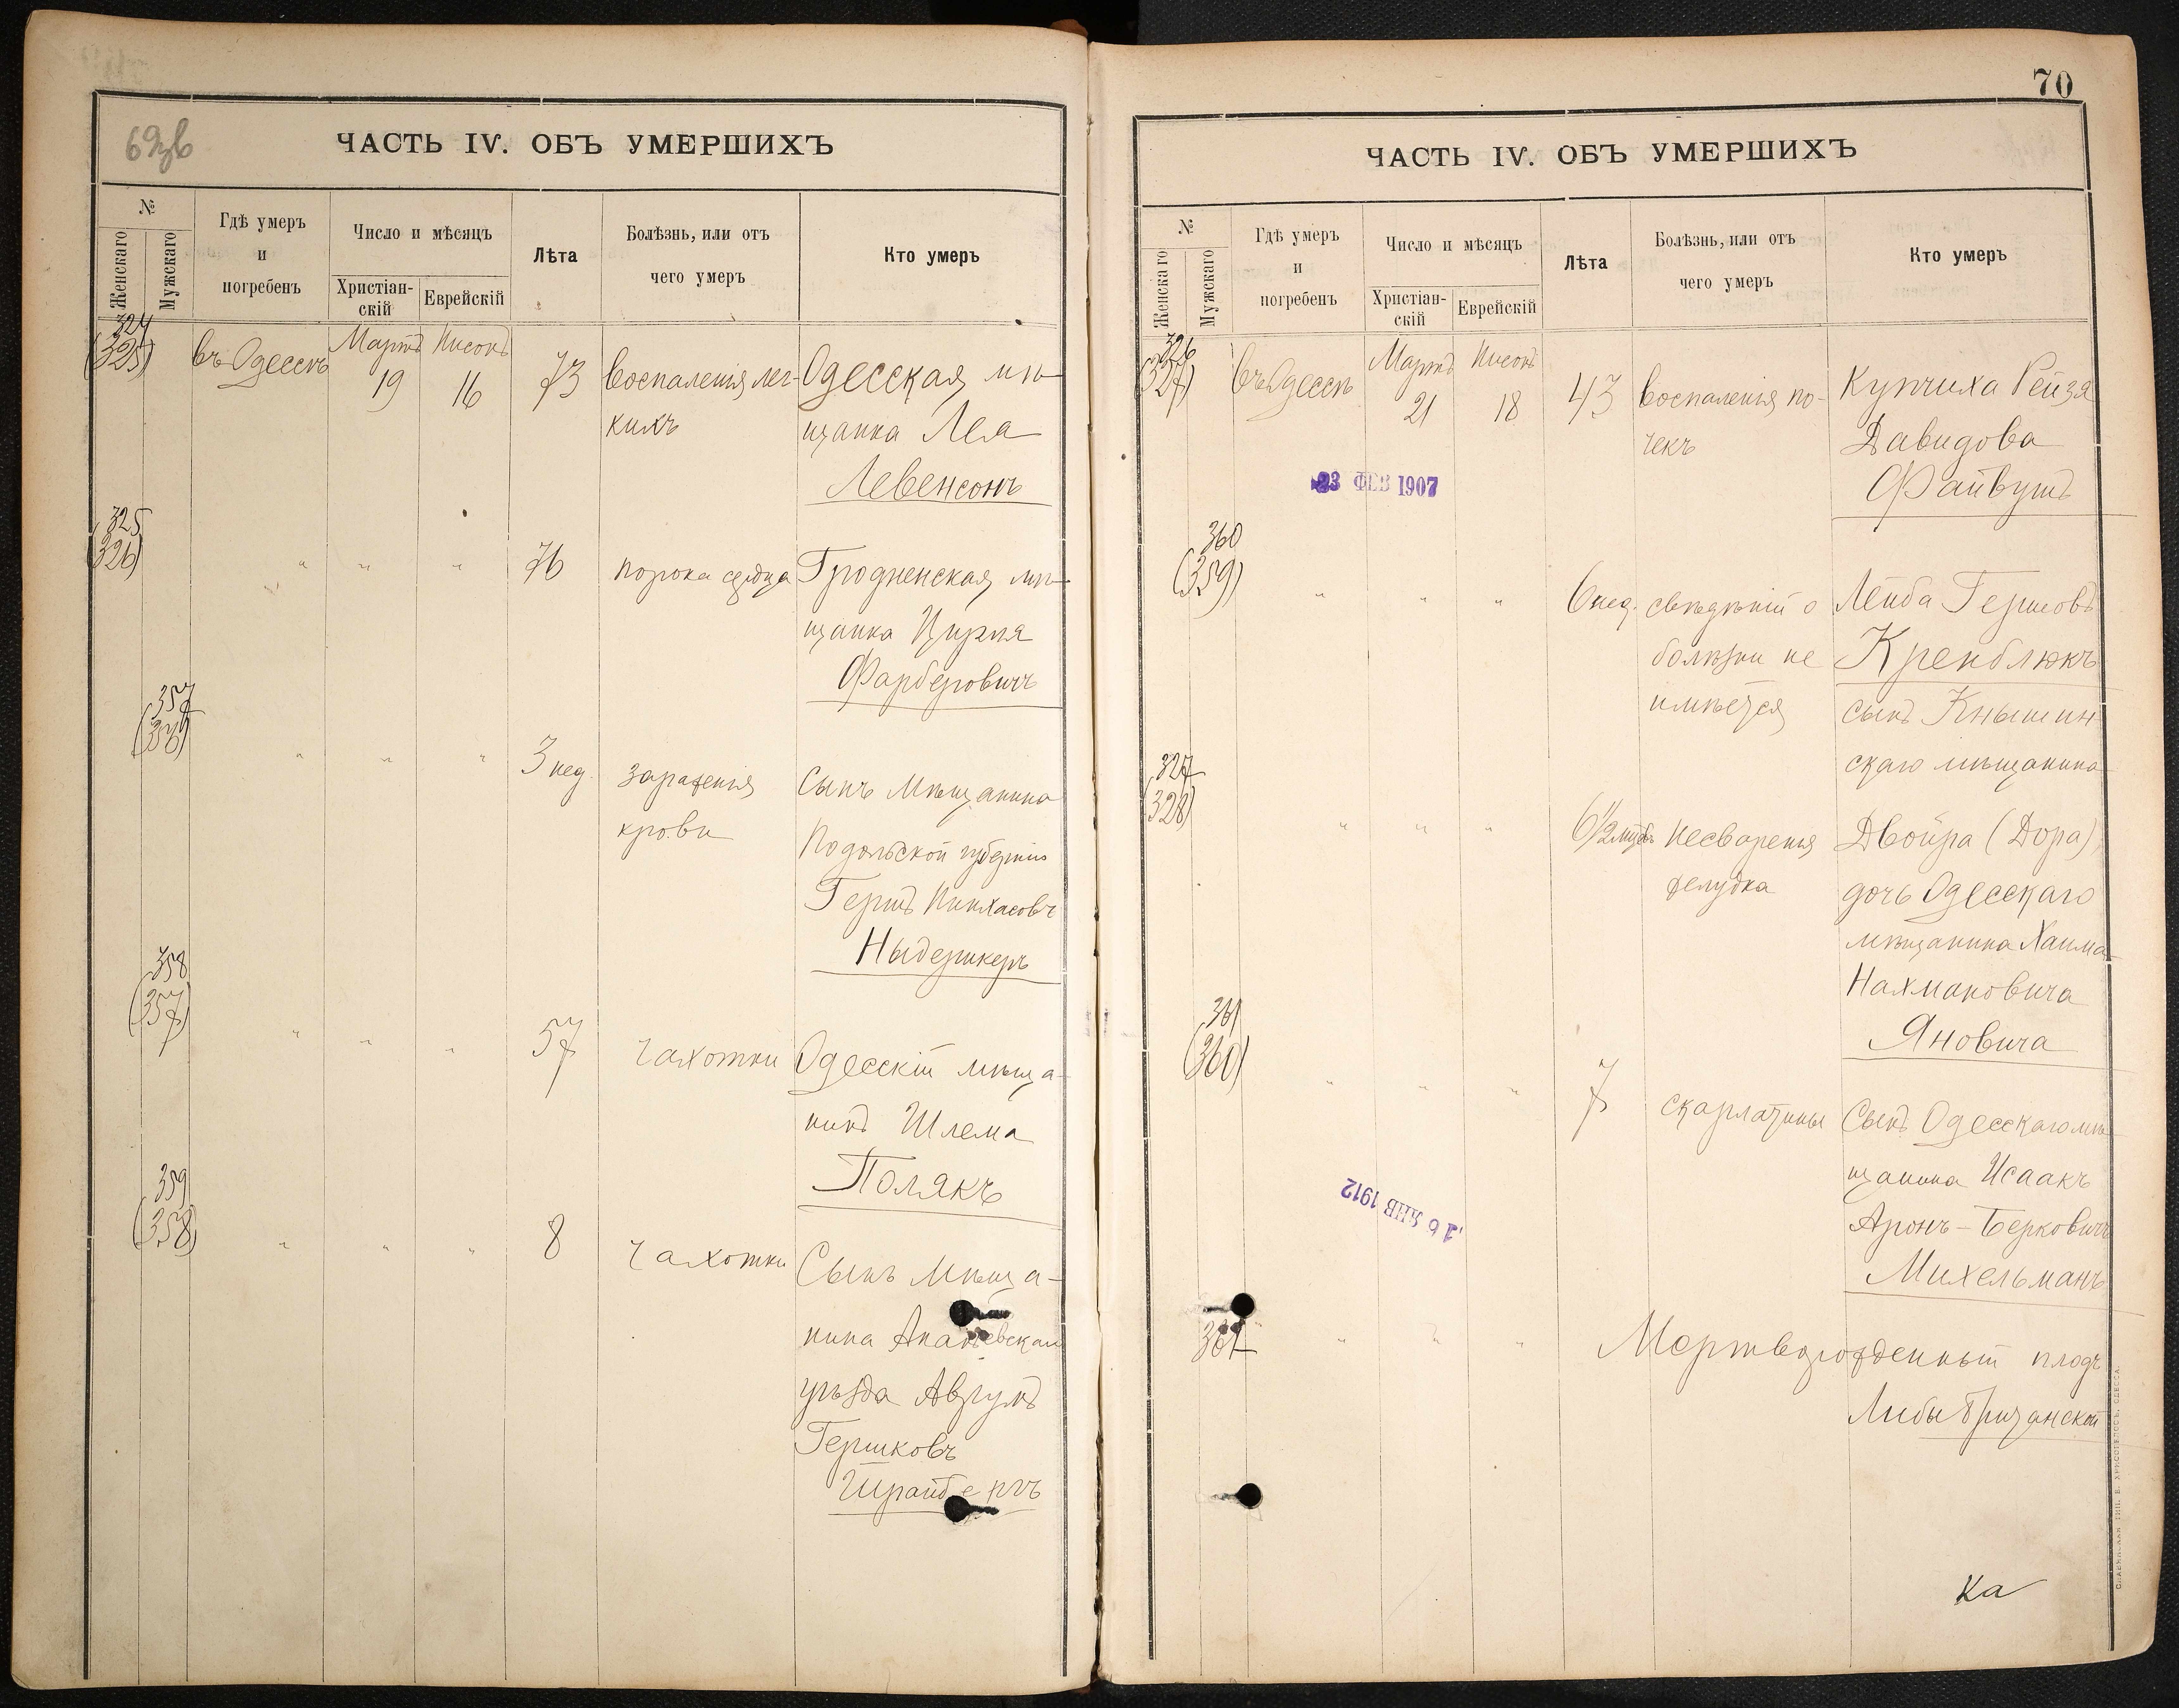 69зв
ЧАСТЬ IV. ОБЪ УМЕРШИХЪ
№
Женскаго
Мужскаго
Гдѣ умеръ
и
погребенъ
Число и мѣсяцъ
Христіан-
скій
Еврейскій
Лѣта
Болѣзнь, или отъ
чего умеръ
Кто умеръ
324
(325)
въ Одессѣ
Мартъ
19
Нисонъ
16
73
воспаленія лег-
кихъ
Одесская мѣ-
щанка Лея
Левенсонъ
325
(326)
" " "
76
порока сердца
Гродненская мѣ-
щанка Цирля
Фарберовичъ
357
" " "
3 нед.
зараженія
крови
Сынъ Мѣщанина
Подольской губерніи
Гершъ Пинхасовъ
Ныдерикеръ
358
(357)
" " "
57
чахотки
Одесскій мѣща-
нинъ Шлема
Полякъ
359
(358)
" " "
8
чахотки
Сынъ Мѣща-
нина Ананьевскаго
уѣзда Аврумъ
Гершковъ
Шрайбергъ
70
ЧАСТЬ IV. ОБЪ УМЕРШИХЪ
№
Женскаго
Мужскаго
Гдѣ умеръ
и
погребенъ
Число и мѣсяцъ
Христіан-
скій
Еврейскій
Лѣта
Болѣзнь, или отъ
чего умеръ
Кто умеръ
326
(327)
въ Одессѣ
Мартъ
21
Нисонъ
18
43
воспаленія по-
чекъ
Купчиха Рейзя
Давидова
Файвушъ
23 ФЕВ 1907
360
(359)
" " "
6 нед.
свѣдѣній о
болѣзни не
имѣется
Лейба Гершовъ
Кренблюкъ
сынъ Кнышин-
скаго мѣщанина
327
(328)
" " "
6 1/2 мѣс.
несваренія
желудка
Двойра (Дора)
дочь Одесскаго
мѣщанина Хаима
Нахмановича
Яновича
361
(360)
" " "
7
скарлатины
Сынъ Одесскаго мѣ-
щанина Исаакъ
Аронъ-Берковичъ
Михельманъ
16 ЯНВ 1912
361
" " "
Мертворожденный плодъ
Либы Бричанской
ка